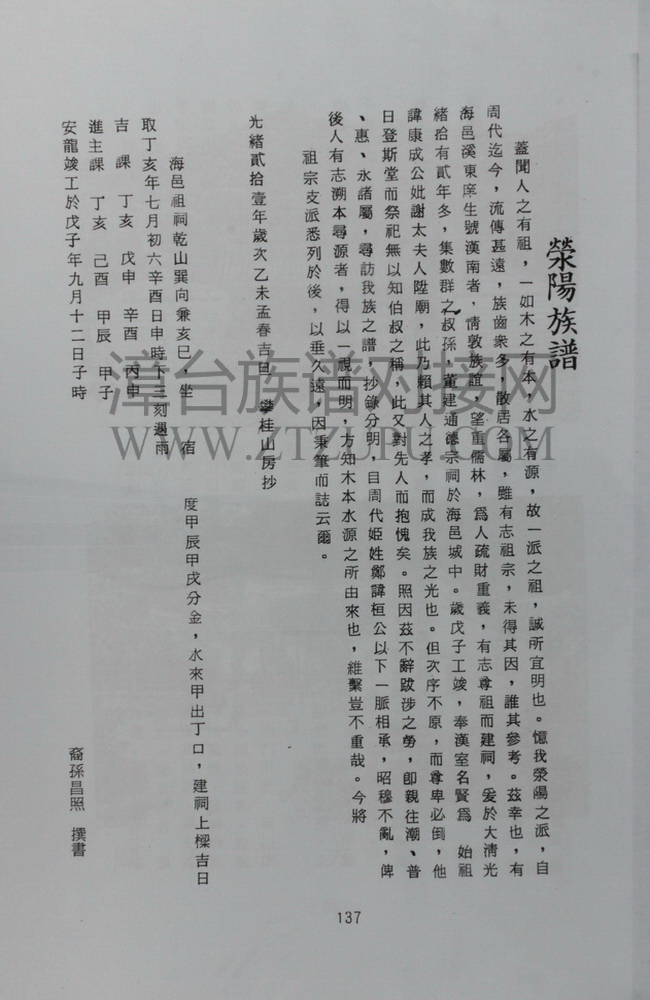 滎陽族譜
蓋聞人之有祖，一如木之有本，水之有源，故一派之祖，誠所宜明也。憶我滎陽之派，自
周代迄今，流傳甚遠，族齒衆多，散居各屬，雖有志祖宗，未得其因，誰其參考。茲幸也，有
海邑溪東庠生號漢南者，情敦族誼，望重儒林，爲人疏財重義，有志尊祖而建祠，爰於大清光
緒拾有貳年冬，集數群之叔孫，董建通德宗祠於海邑城中。歲戊子工竣，奉漢室名賢爲　始祖
諱康成公妣謝太夫人陞廟，此乃賴其人之孝，而成我族之光也。但次序不原，而尊卑必倒，他
日登斯堂而祭祀無以知伯叔之稱，此又對先人而抱愧矣。照因茲不辭跋涉之勞，卽親往潮、普
、惠、永諸屬，尋訪我族之譜，抄錄分明，自周代姬姓鄭諱桓公以下一脈相承，昭穆不亂，俾
後人有志溯本尋源者，得以一視而明，方知木本水源之所由來也，維繫豈不重哉。今將
祖宗支派悉列於後，以垂久遠，因秉筆而誌云爾。
光緒貳拾壹年歲次乙未孟春吉旦　攀桂山房抄
海邑祖祠乾山巽向兼亥巳，坐　宿　度甲辰甲戌分金，水來甲出丁口，建祠上樑吉日
取丁亥年七月初六辛酉日申時下三刻遇雨
吉　課　丁亥　戊申　辛酉　丙申
進主課　丁亥　己酉　甲辰　甲子
安龍竣工於戊子年九月十二日子時
裔孫昌照　撰書
137
漳台族谱对接网
WWW.ZTZUPU.COM